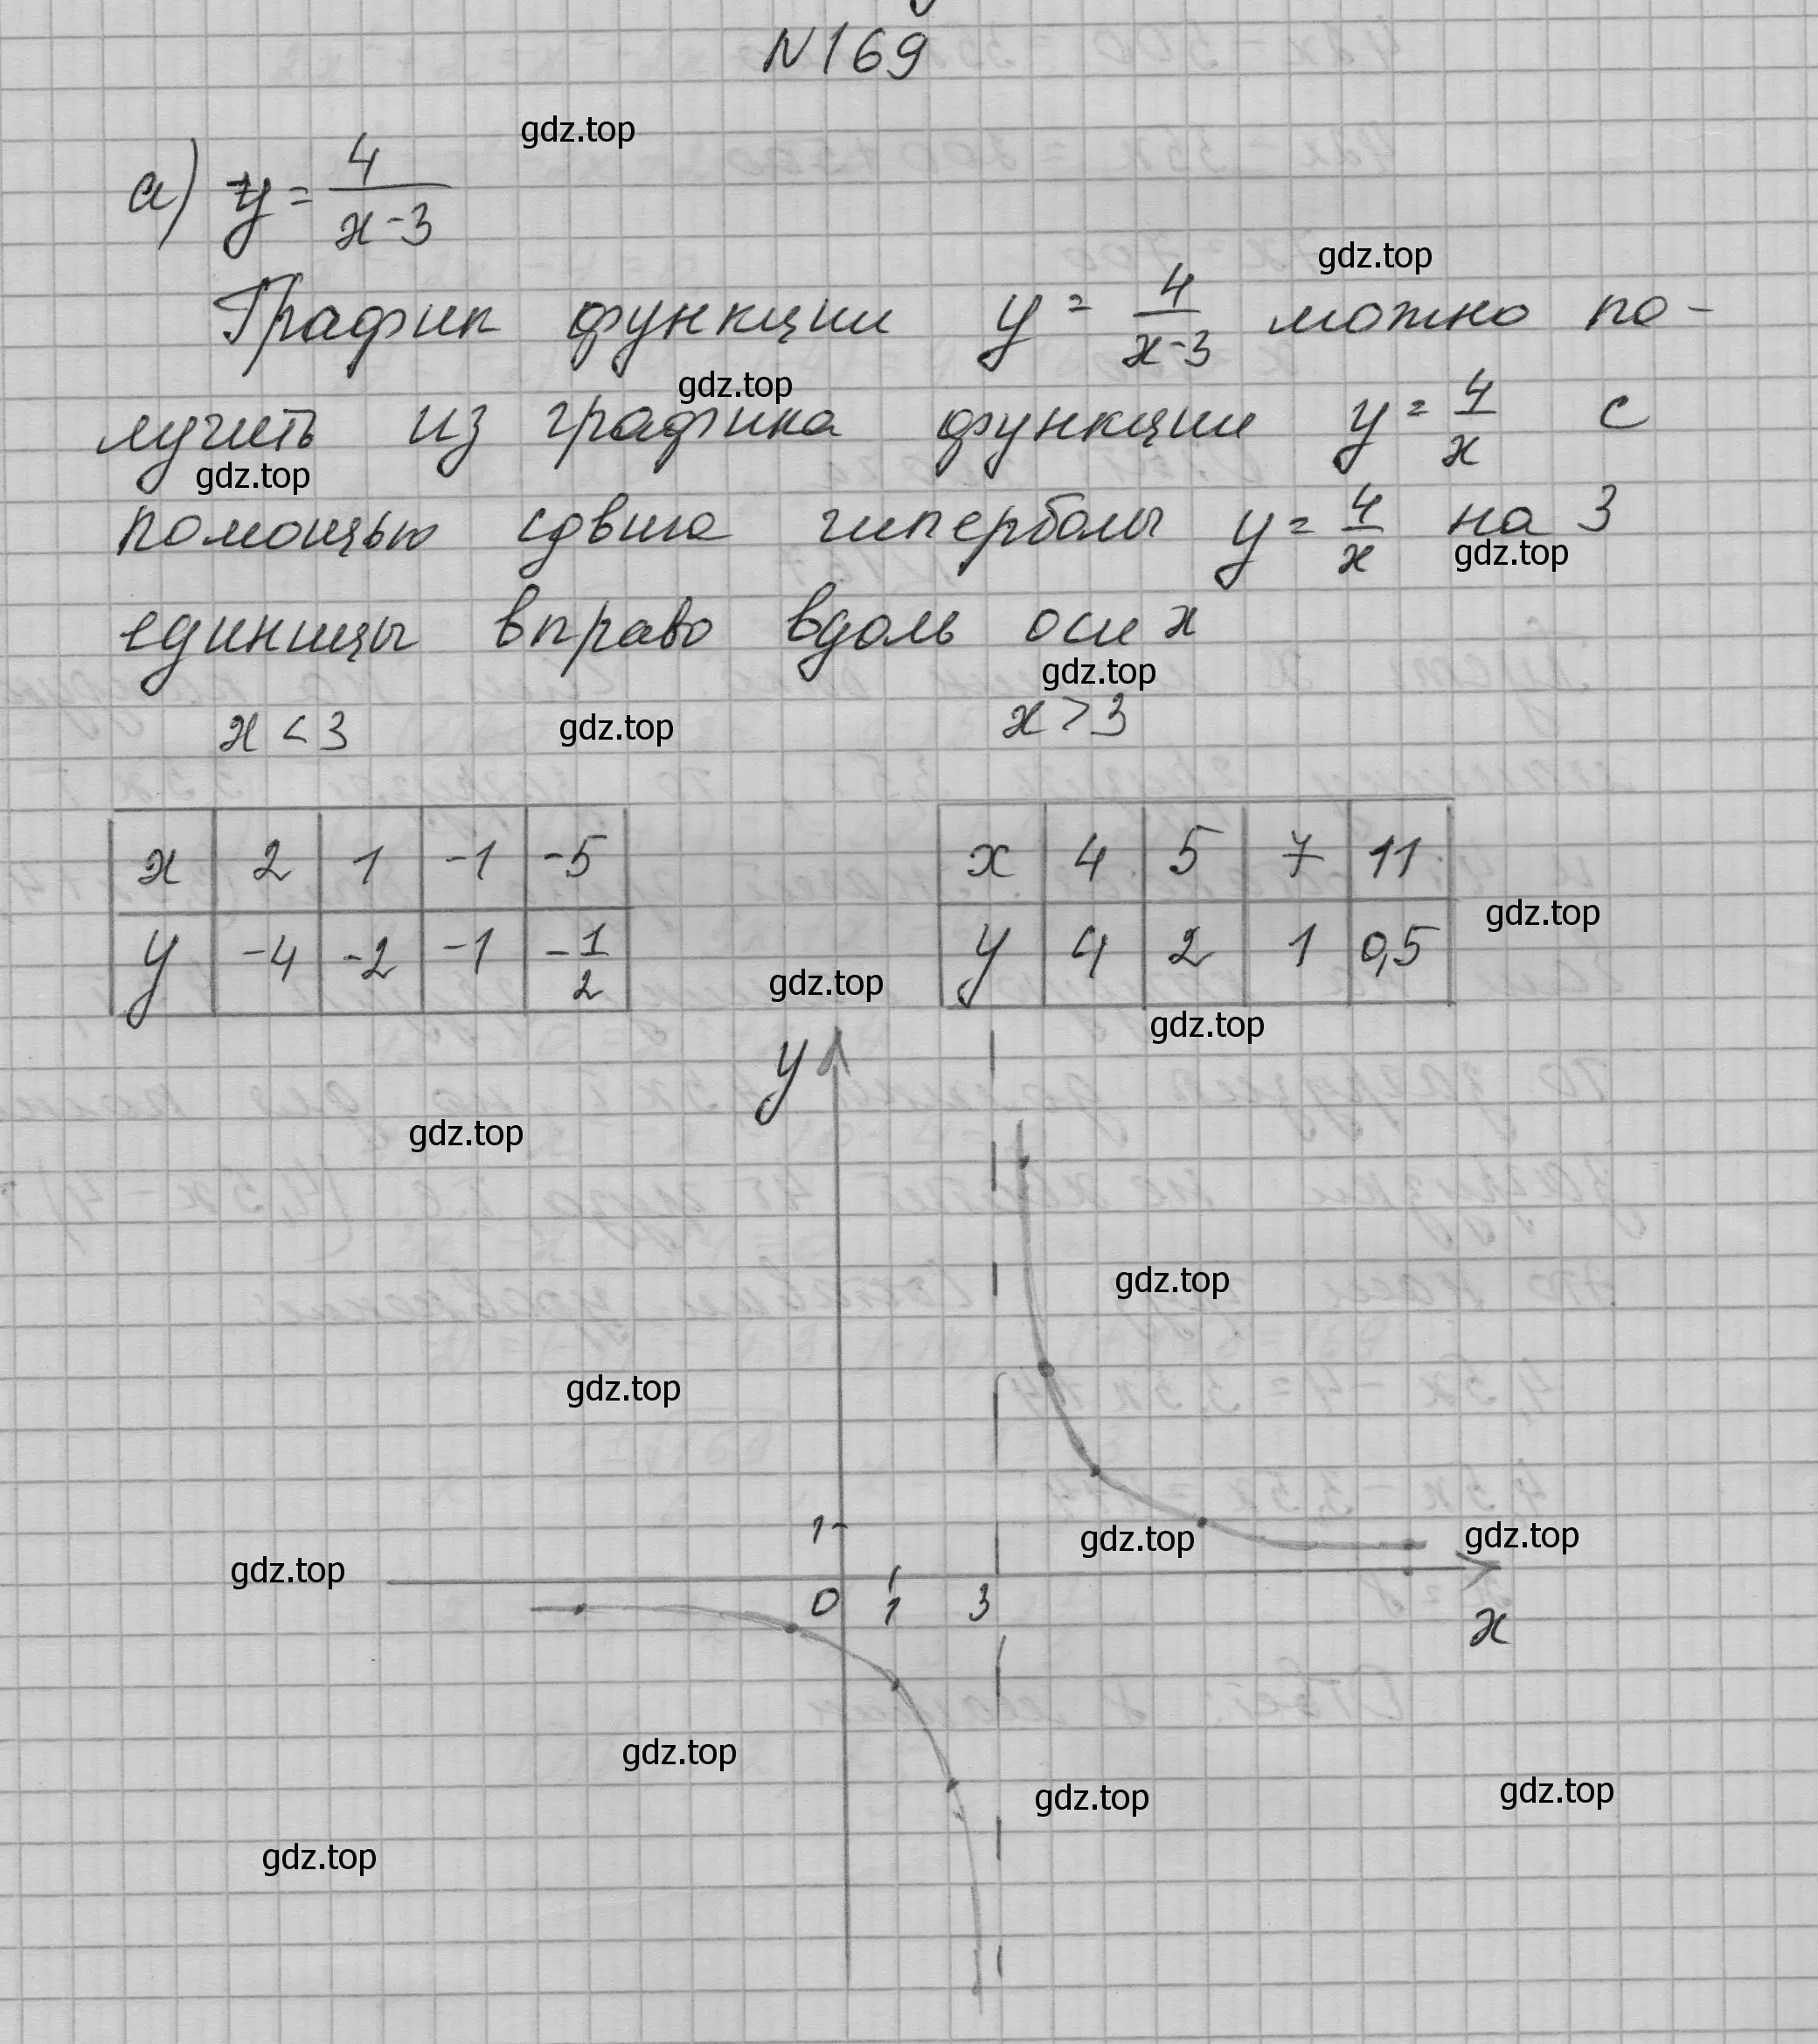 N169
gdz.top
а) y = 4/(x-3)
gdz.top
График функции y = 4/(x-3) можно по-
gdz.top
лучить из графика функции y = 4/x с
gdz.top
помощью сдвига гиперболы y = 4/x на 3
gdz.top
единицы вправо вдоль оси x
gdz.top
x < 3 gdz.top x > 3
x 2 1 -1 -5
y -4 -2 -1 -1/2
x 4 5 7 11
y 4 2 1 0,5
gdz.top
gdz.top
gdz.top
y
gdz.top
gdz.top
gdz.top
1
gdz.top
gdz.top
gdz.top
0 1 3
x
gdz.top
gdz.top
gdz.top
gdz.top